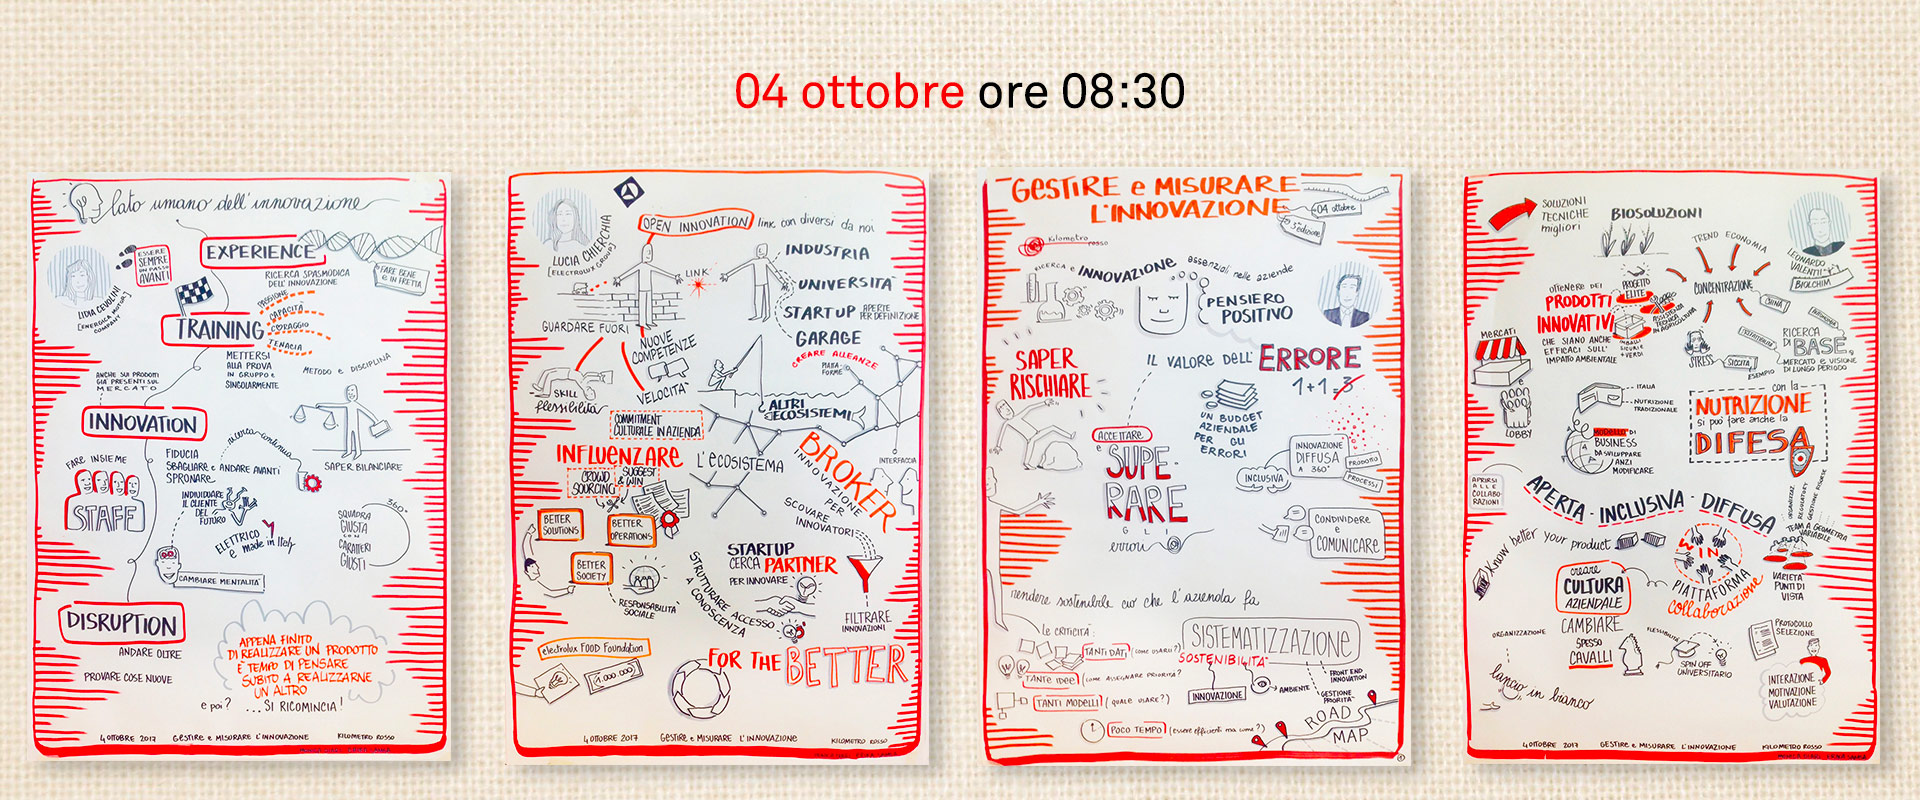 04 ottobre ore 08:30
lato umano dell'innovazione
EXPERIENCE
ESSERE
SEMPRE
UN PASSO
AVANTI
LIDIA CEVOLINI
[ENERGICA MOTOR
COMPANY]
RICERCA SPASMODICA
DELL'INNOVAZIONE
FARE BENE
e IN FRETTA
PASSIONE
CAPACITÀ
CORAGGIO
TENACIA
TRAINING
METTERSI
ALLA PROVA
IN GRUPPO e
SINGOLARMENTE
METODO e DISCIPLINA
ANCHE SUI PRODOTTI
GIÀ PRESENTI SUL
MERCATO
INNOVATION
ricerca continua
SAPER BILANCIARE
FARE INSIEME
STAFF
FIDUCIA
SBAGLIARE e ANDARE AVANTI
SPRONARE
INDIVIDUARE
IL CLIENTE
DEL
FUTURO
ELETTRICO
e made in Italy
360°
SQUADRA
GIUSTA
CON
CARATTERI
GIUSTI
CAMBIARE MENTALITÀ
DISRUPTION
ANDARE OLTRE
PROVARE COSE NUOVE
APPENA FINITO
DI REALIZZARE UN PRODOTTO
È TEMPO DI PENSARE
SUBITO A REALIZZARNE
UN ALTRO
e poi? ...SI RICOMINCIA!
4 OTTOBRE 2017 GESTIRE e MISURARE L'INNOVAZIONE KILOMETRO ROSSO
LUCIA CHIERCHIA
[ELECTROLUX GROUP]
OPEN INNOVATION link con diversi da noi
LINK
INDUSTRIA
UNIVERSITÀ
STARTUP APERTE
PER DEFINIZIONE
GARAGE
CREARE ALLEANZE
GUARDARE FUORI
NUOVE
COMPETENZE
VELOCITÀ
SKILL
flessibilità
PIATTA-
FORME
ALTRI
ECOSISTEMI
COMMITMENT
CULTURALE IN AZIENDA
INFLUENZARE
CROWD
SOURCING
SUGGEST
& WIN
L'ECOSISTEMA
BROKER
INNOVAZIONE
PER
SCOVARE
INNOVATORI
INTERFACCIA
BETTER
SOLUTIONS
BETTER
OPERATIONS
BETTER
SOCIETY
RESPONSABILITÀ
SOCIALE
STARTUP
CERCA PARTNER
PER INNOVARE
STRUTTURARE ACCESSO
A CONOSCENZA
FILTRARE
INNOVAZIONI
electrolux FOOD Foundation
1.000.000
FOR THE BETTER
4 OTTOBRE 2017 GESTIRE e MISURARE L'INNOVAZIONE KILOMETRO ROSSO
GESTIRE e MISURARE
L'INNOVAZIONE
04 ottobre
5° edizione
Kilometro
rosso
RICERCA e INNOVAZIONE essenziali nelle aziende
PENSIERO
POSITIVO
SAPER
RISCHIARE
IL VALORE DELL'ERRORE
1+1=3
UN BUDGET
AZIENDALE
PER
GLI
ERRORI
ACCETTARE
SUPE-
RARE
GLI
errori
INNOVAZIONE
DIFFUSA
A 360°
INCLUSIVA
PRODOTTO
PROCESSI
CONDIVIDERE
e
COMUNICARE
rendere sostenibile ciò che l'azienda fa
le CRITICITÀ:
TANTI DATI (COME USARLI?)
TANTE IDEE (COME ASSEGNARE PRIORITÀ?)
TANTI MODELLI (QUALE USARE?)
POCO TEMPO (essere efficienti ma come?)
SISTEMATIZZAZIONE
SOSTENIBILITÀ
INNOVAZIONE
AMBIENTE
FRONT END
INNOVATION
GESTIONE
PRIORITÀ
ROAD
MAP
SOLUZIONI
TECNICHE
migliori
BIOSOLUZIONI
TREND ECONOMIA
LEONARDO
VALENTI
BIOLCHIM
CONCENTRAZIONE
CINA
OTTENERE DEI
PRODOTTI
INNOVATIVI
CHE SIANO ANCHE
EFFICACI SULL'
IMPATTO AMBIENTALE
PROGETTO
ELITE
IMBALLI
SICURI e
+ VERDI
MERCATI
e
LOBBY
STRESS
SICCITÀ
ESEMPIO
RICERCA
DI BASE,
MERCATO e VISIONE
DI LUNGO PERIODO
ITALIA
NUTRIZIONE
TRADIZIONALE
MODELLO DI
BUSINESS
DA SVILUPPARE
/ANZI
MODIFICARE
con la
NUTRIZIONE
si può fare anche la
DIFESA
APRIRSI
ALLE
COLLABO-
RAZIONI
APERTA - INCLUSIVA - DIFFUSA
TEAM A GEOMETRIA
VARIABILE
Know better your product
WIN
PIATTAFORMA
collaborazione
VARIETÀ
PUNTI DI
VISTA
creare
CULTURA
AZIENDALE
ORGANIZZAZIONE
CAMBIARE
SPESSO
CAVALLI
FLESSIBILITÀ
SPIN OFF
UNIVERSITARIO
PROTOCOLLO
SELEZIONE
INTERAZIONE
MOTIVAZIONE
VALUTAZIONE
lancio in bianco
4 OTTOBRE 2017 GESTIRE e MISURARE L'INNOVAZIONE KILOMETRO ROSSO